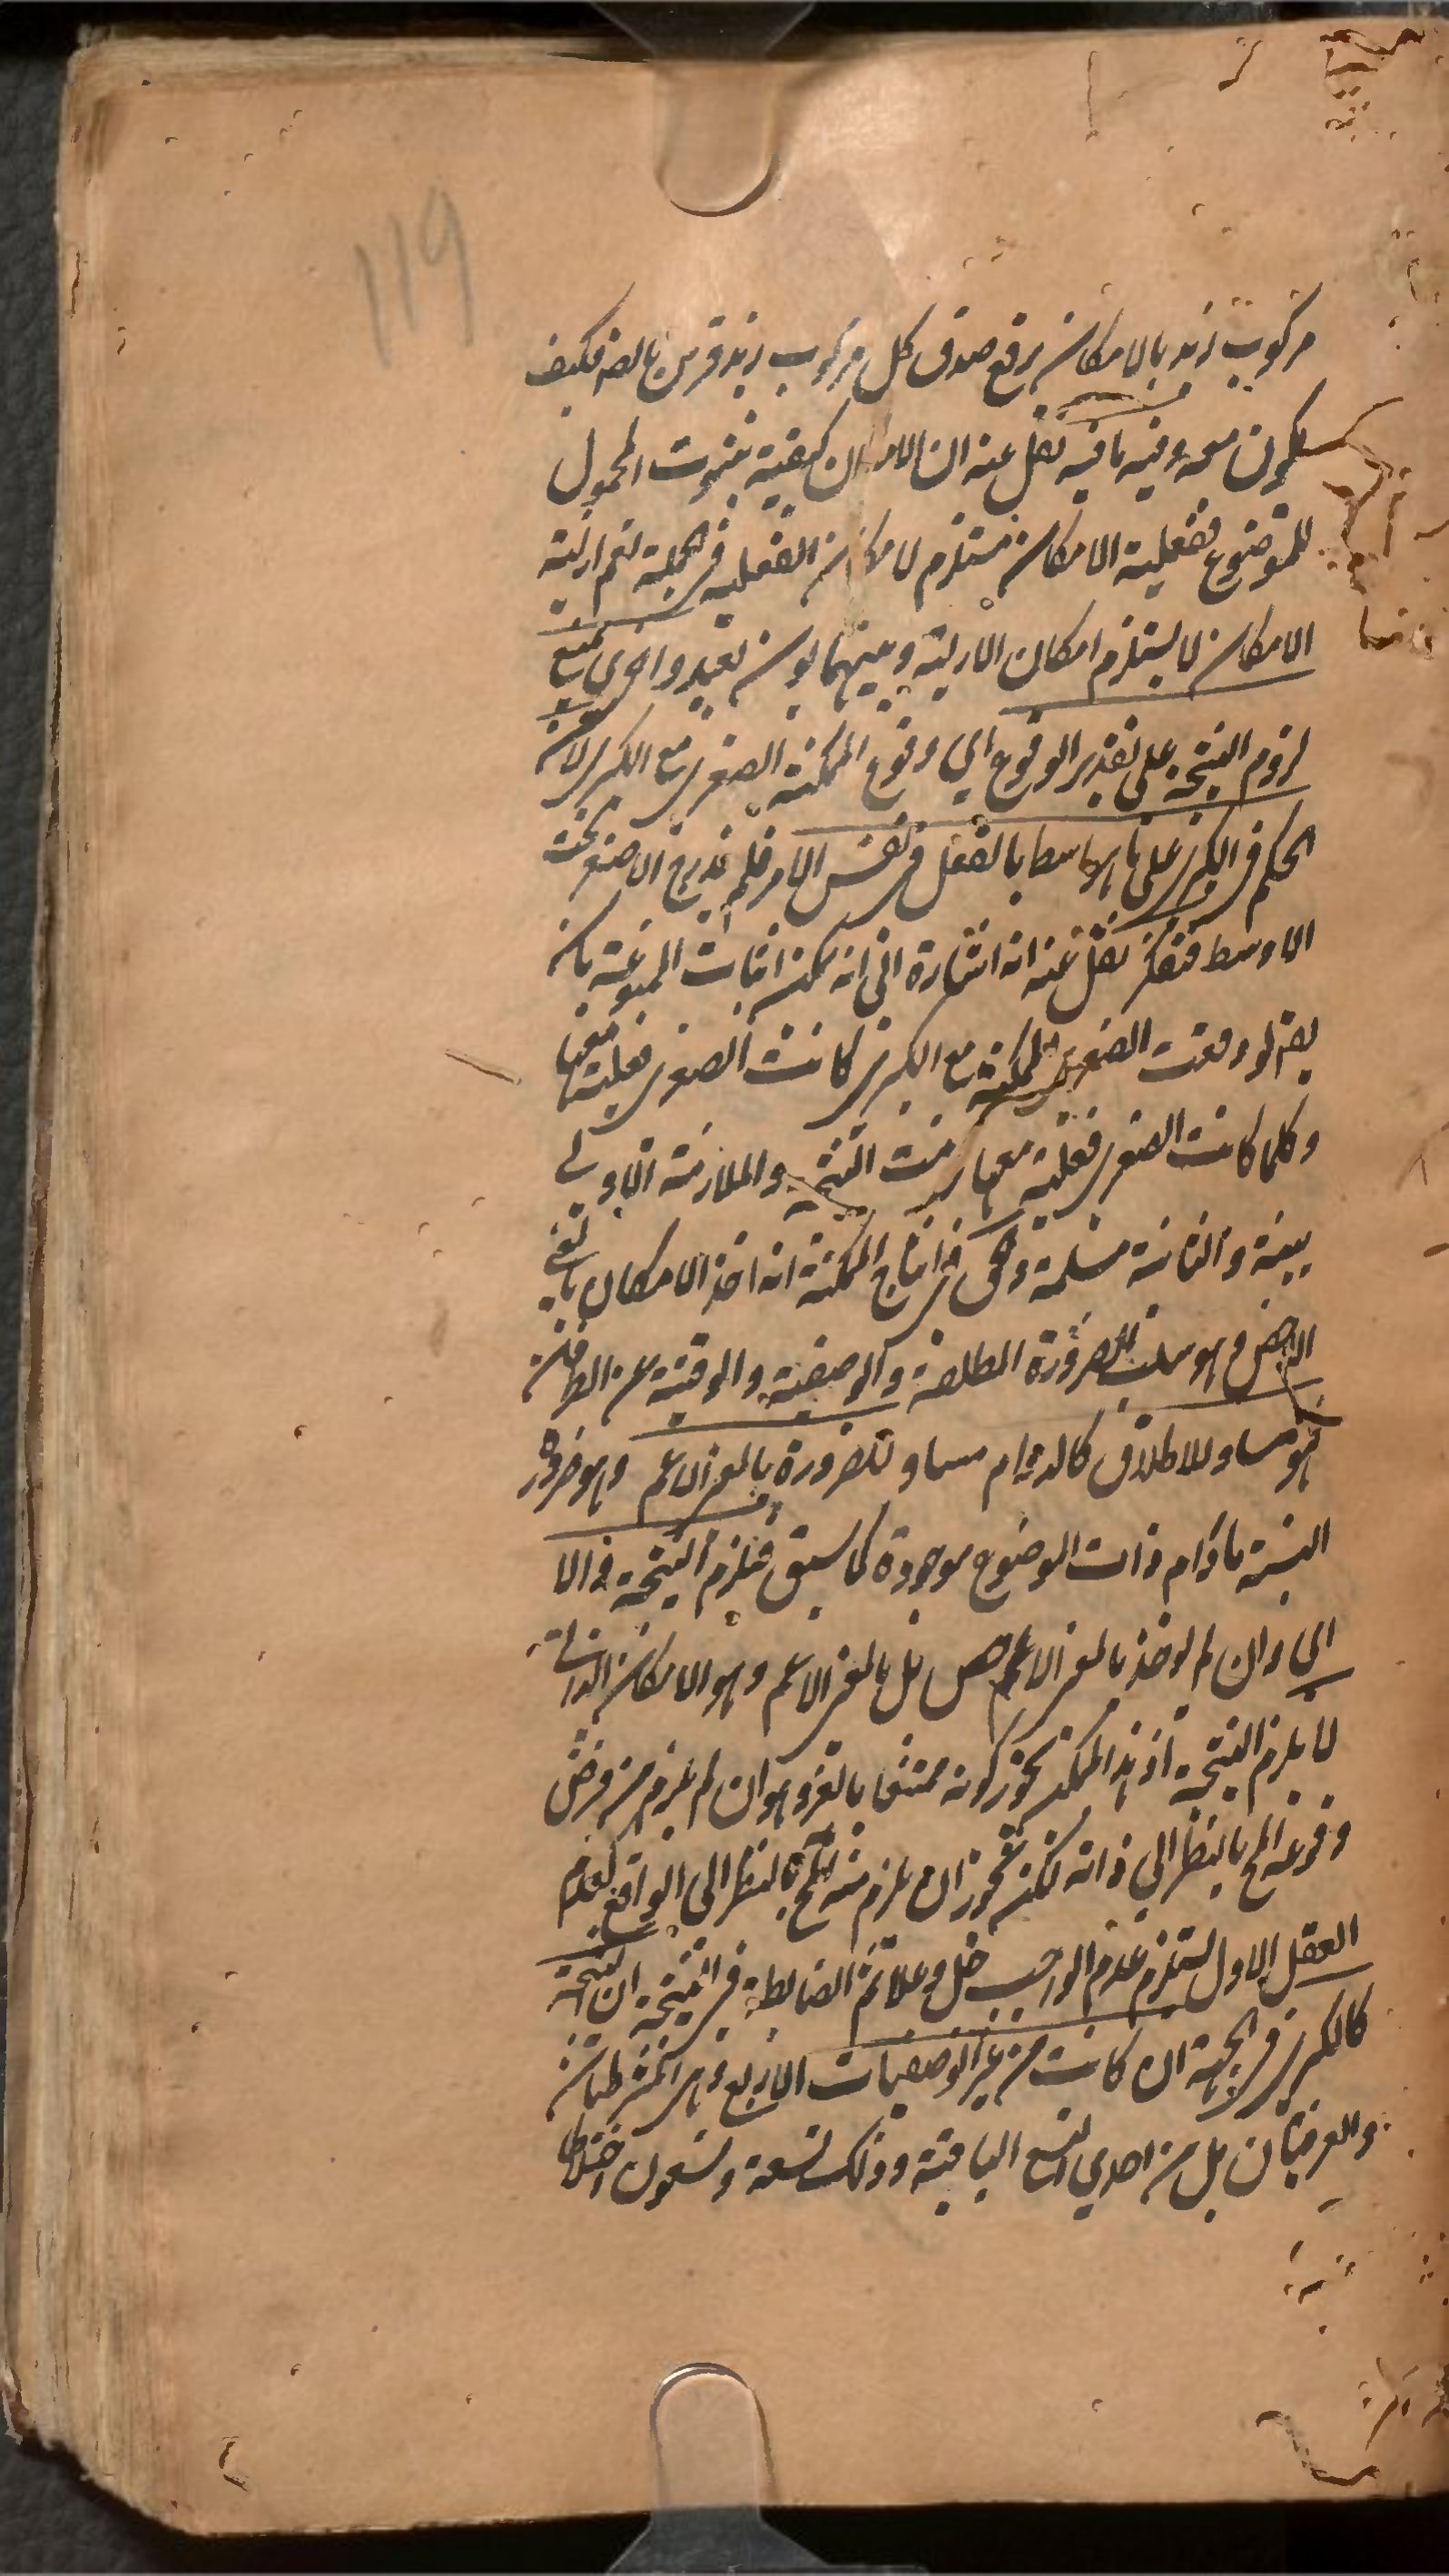 119
مركوب زيد بالامكان يرفع صدق كل مركوب زيد فرس بالضـ فكيف
يكون معه وفيه ما فيه نقل عنه ان الامكان كيفية ثبوت المحمول
للموضوع ففعلية الامكان مستلزم لامكان الفعلية في الجملة نعم ازلية
الامكان لا يستلزم امكان الازلية وبينهما بون بعيد واخرى بمنع
لزوم النتيجة على تقدير الوقوع اي وقوع الممكنة الصغرى مع الكبرى لان
الحكم في الكبرى على ما هو اوسط بالفعل في نفس الامر فلم يندرج الاصغر تحت
الاوسط فتفكر نقل عنه انه اشارة الى انه يمكن اثبات الممنوعة بانه
يقـ لو وقعت الصغرى الممكنة مع الكبرى كانت الصغرى فعلية معها
وكلما كانت الصغرى فعلية معها لزمت النتيجة والملازمة الاولى
بينة والثانية مسلمة والحق في انتاج الممكنة انه اخذ الامكان بالمعنى
الاخص وهو سلب الضرورة المطلقة والوصفية والوقتية عن الطرفين
فهو مساو للاطلاق كالدوام مساو للضرورة بالمعنى الاعم وهو ضرورة
النسبة ما دام ذات الموضوع موجودة كما سبق فيلزم النتيجة والا
اي وان لم يوخذ بالمعنى الاخص بل بالمعنى الاعم وهو الامكان الذاتي
لا يلزم النتيجة اذ هذا الممكن يجوز كونه ممتنعا بالغير وهو ان لم يلزم من فرض
وقوعه المح بالنظر الى ذاته لكنه يجوز ان يلزم منه المح بالنظر الى الواقع كعدم
العقل الاول يستلزم عدم الواجب
كالكبرى في الجهة ان كانت من غير الوصفيات الاربع وهي المشروطتان
والعرفيتان بل من احدى التسع الباقية وذلك تسعة وتسعون اختلاطا